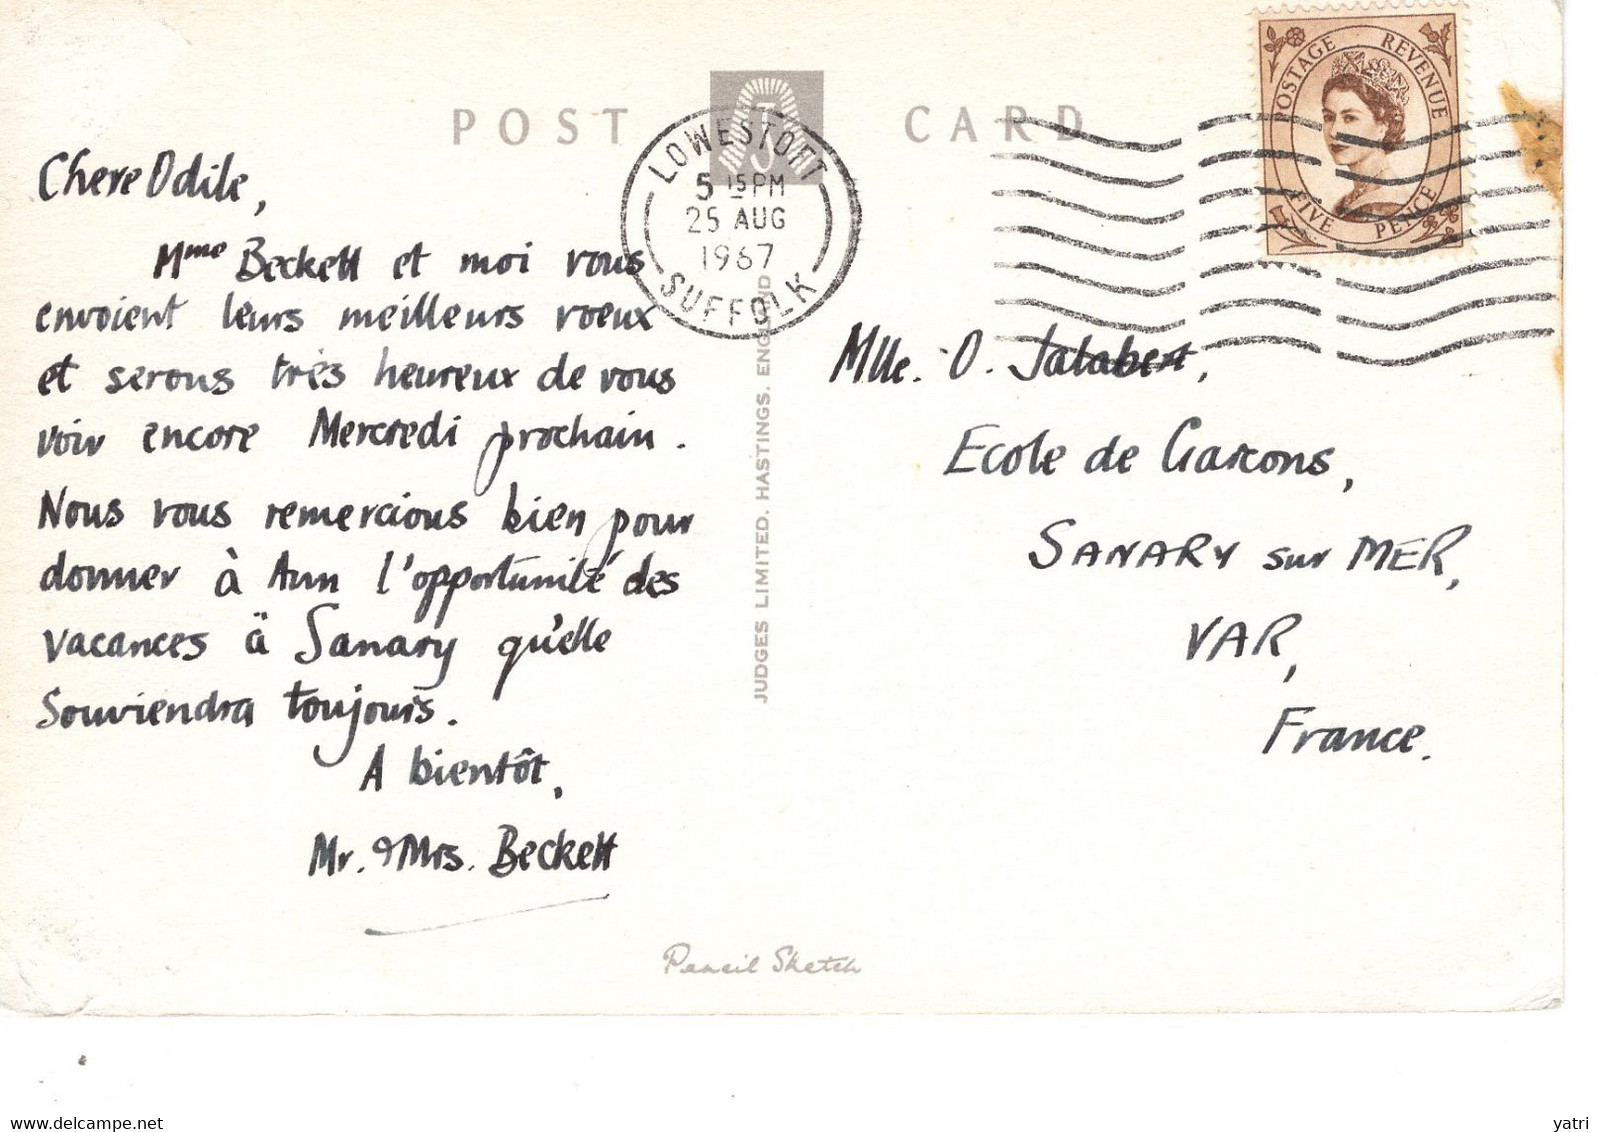 POST CARD
LOWESTOFT
5 15 PM
25 AUG
1967
SUFFOLK
POSTAGE REVENUE
FIVE PENCE
Chere Odile,
Mme Beckett et moi vous
envoient leurs meilleurs voeux
et serons très heureux de vous
voir encore Mercredi prochain.
Nous vous remercions bien pour
donner à Ann l'opportunité des
vacances à Sanary qu'elle
Souviendra toujours.
A bientôt,
Mr. & Mrs. Beckett
JUDGES LIMITED. HASTINGS. ENGLAND
Mlle. O. Jalabert,
Ecole de Garcons,
SANARY sur MER,
VAR,
France.
Pencil Sketch
delcampe.net
yatri